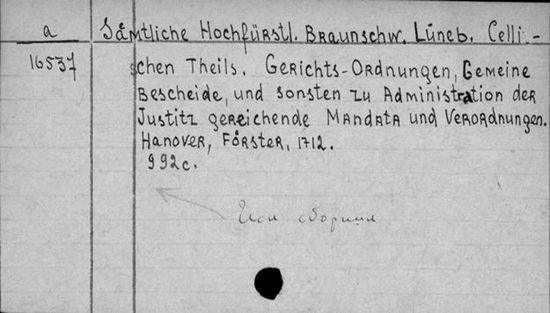 a Sämtliche Hochfürstl. Braunschw. Lüneb. Celli-
16537 schen Theils. Gerichts-Ordnungen, Gemeine
Bescheide, und sonsten zu Administration der
Justitz gereichende Mandata und Verordnungen.
Hanover, Förster, 1712.
992c.
сборник